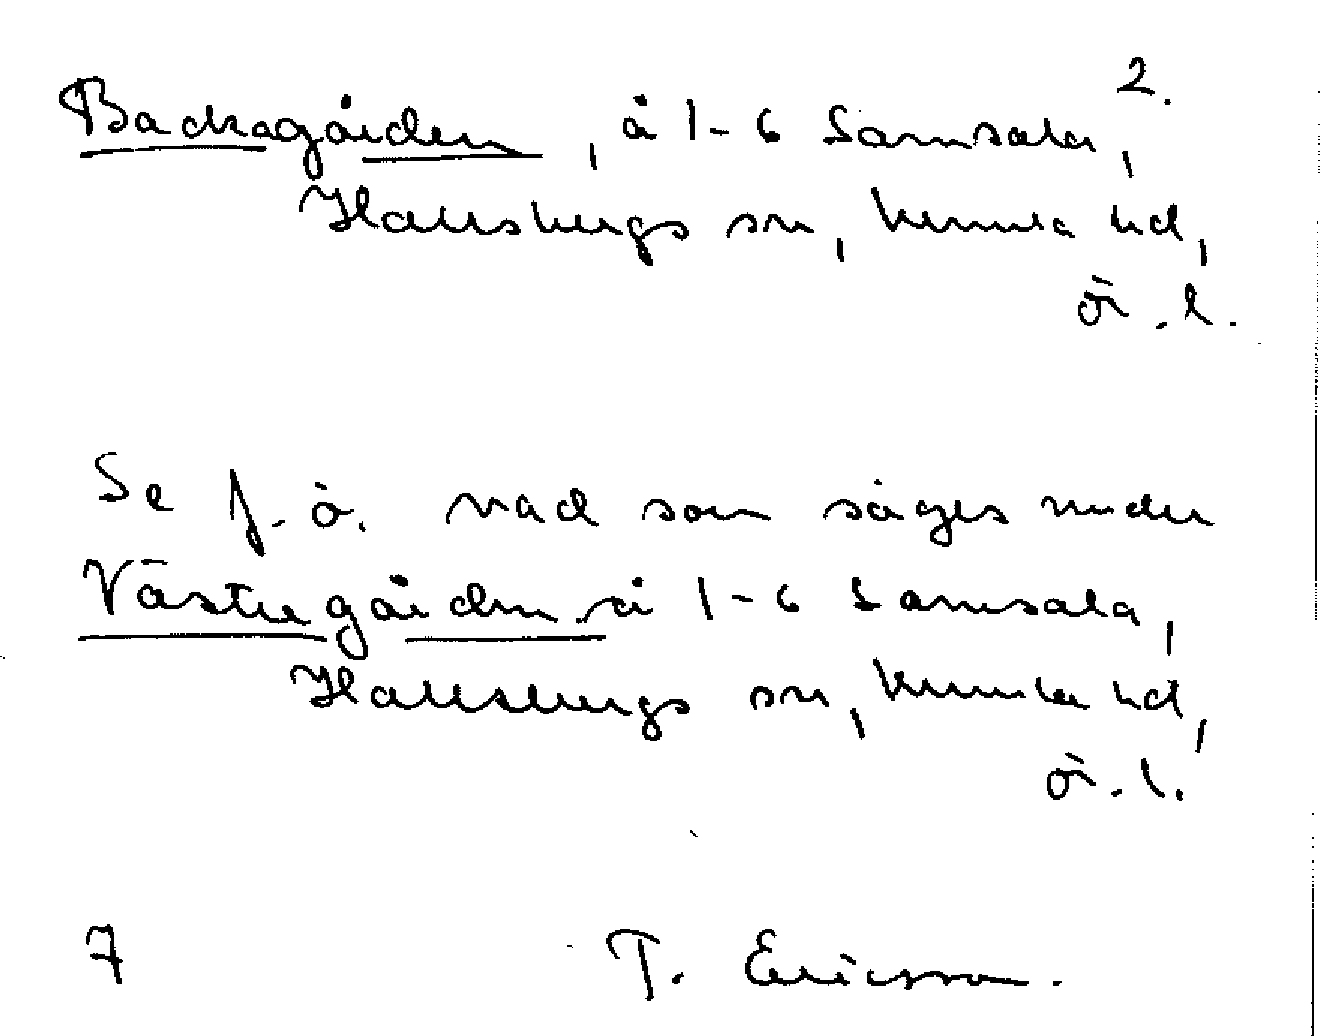 2.
Backagården, å 1-6 Samsala,
Hallsbergs sn, Kumla hd,
ör. l.
Se f. ö. vad som säges under
Västergården å 1-6 Samsala,
Hallsbergs sn, Kumla hd,
ör. l.
7 T. Ericsson.